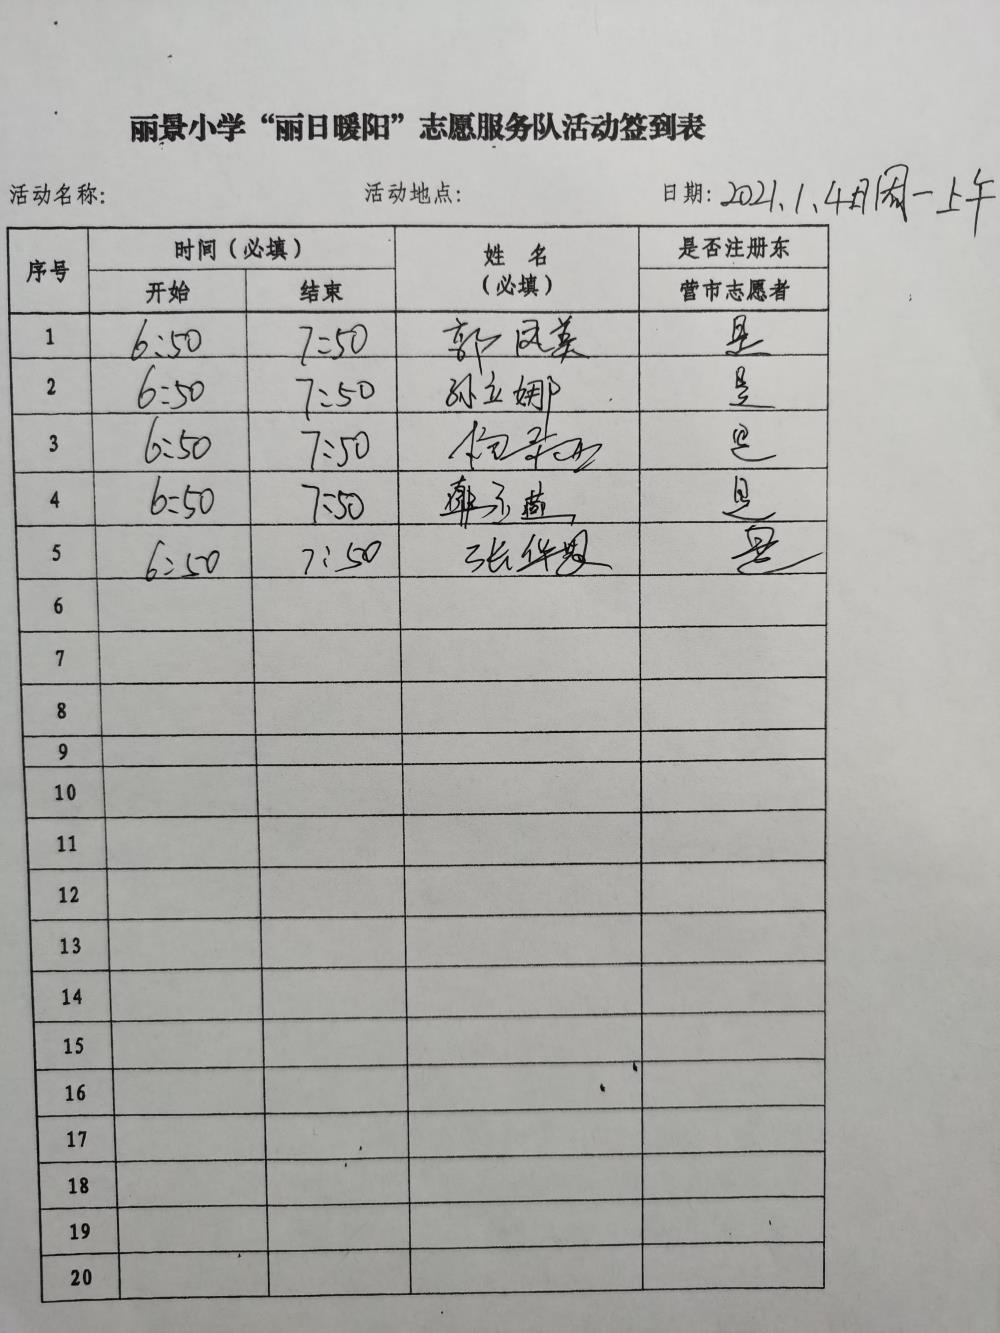 丽景小学“丽日暖阳”志愿服务队活动签到表
活动名称: 活动地点: 日期: 2021.1.4日周一上午
序号 时间(必填) 姓 名 (必填) 是否注册东营市志愿者
开始 结束
1 6:50 7:50 郭凤英 是
2 6:50 7:50 孙立娜 是
3 6:50 7:50 是
4 6:50 7:50 是
5 6:50 7:50 张华 是
6
7
8
9
10
11
12
13
14
15
16
17
18
19
20